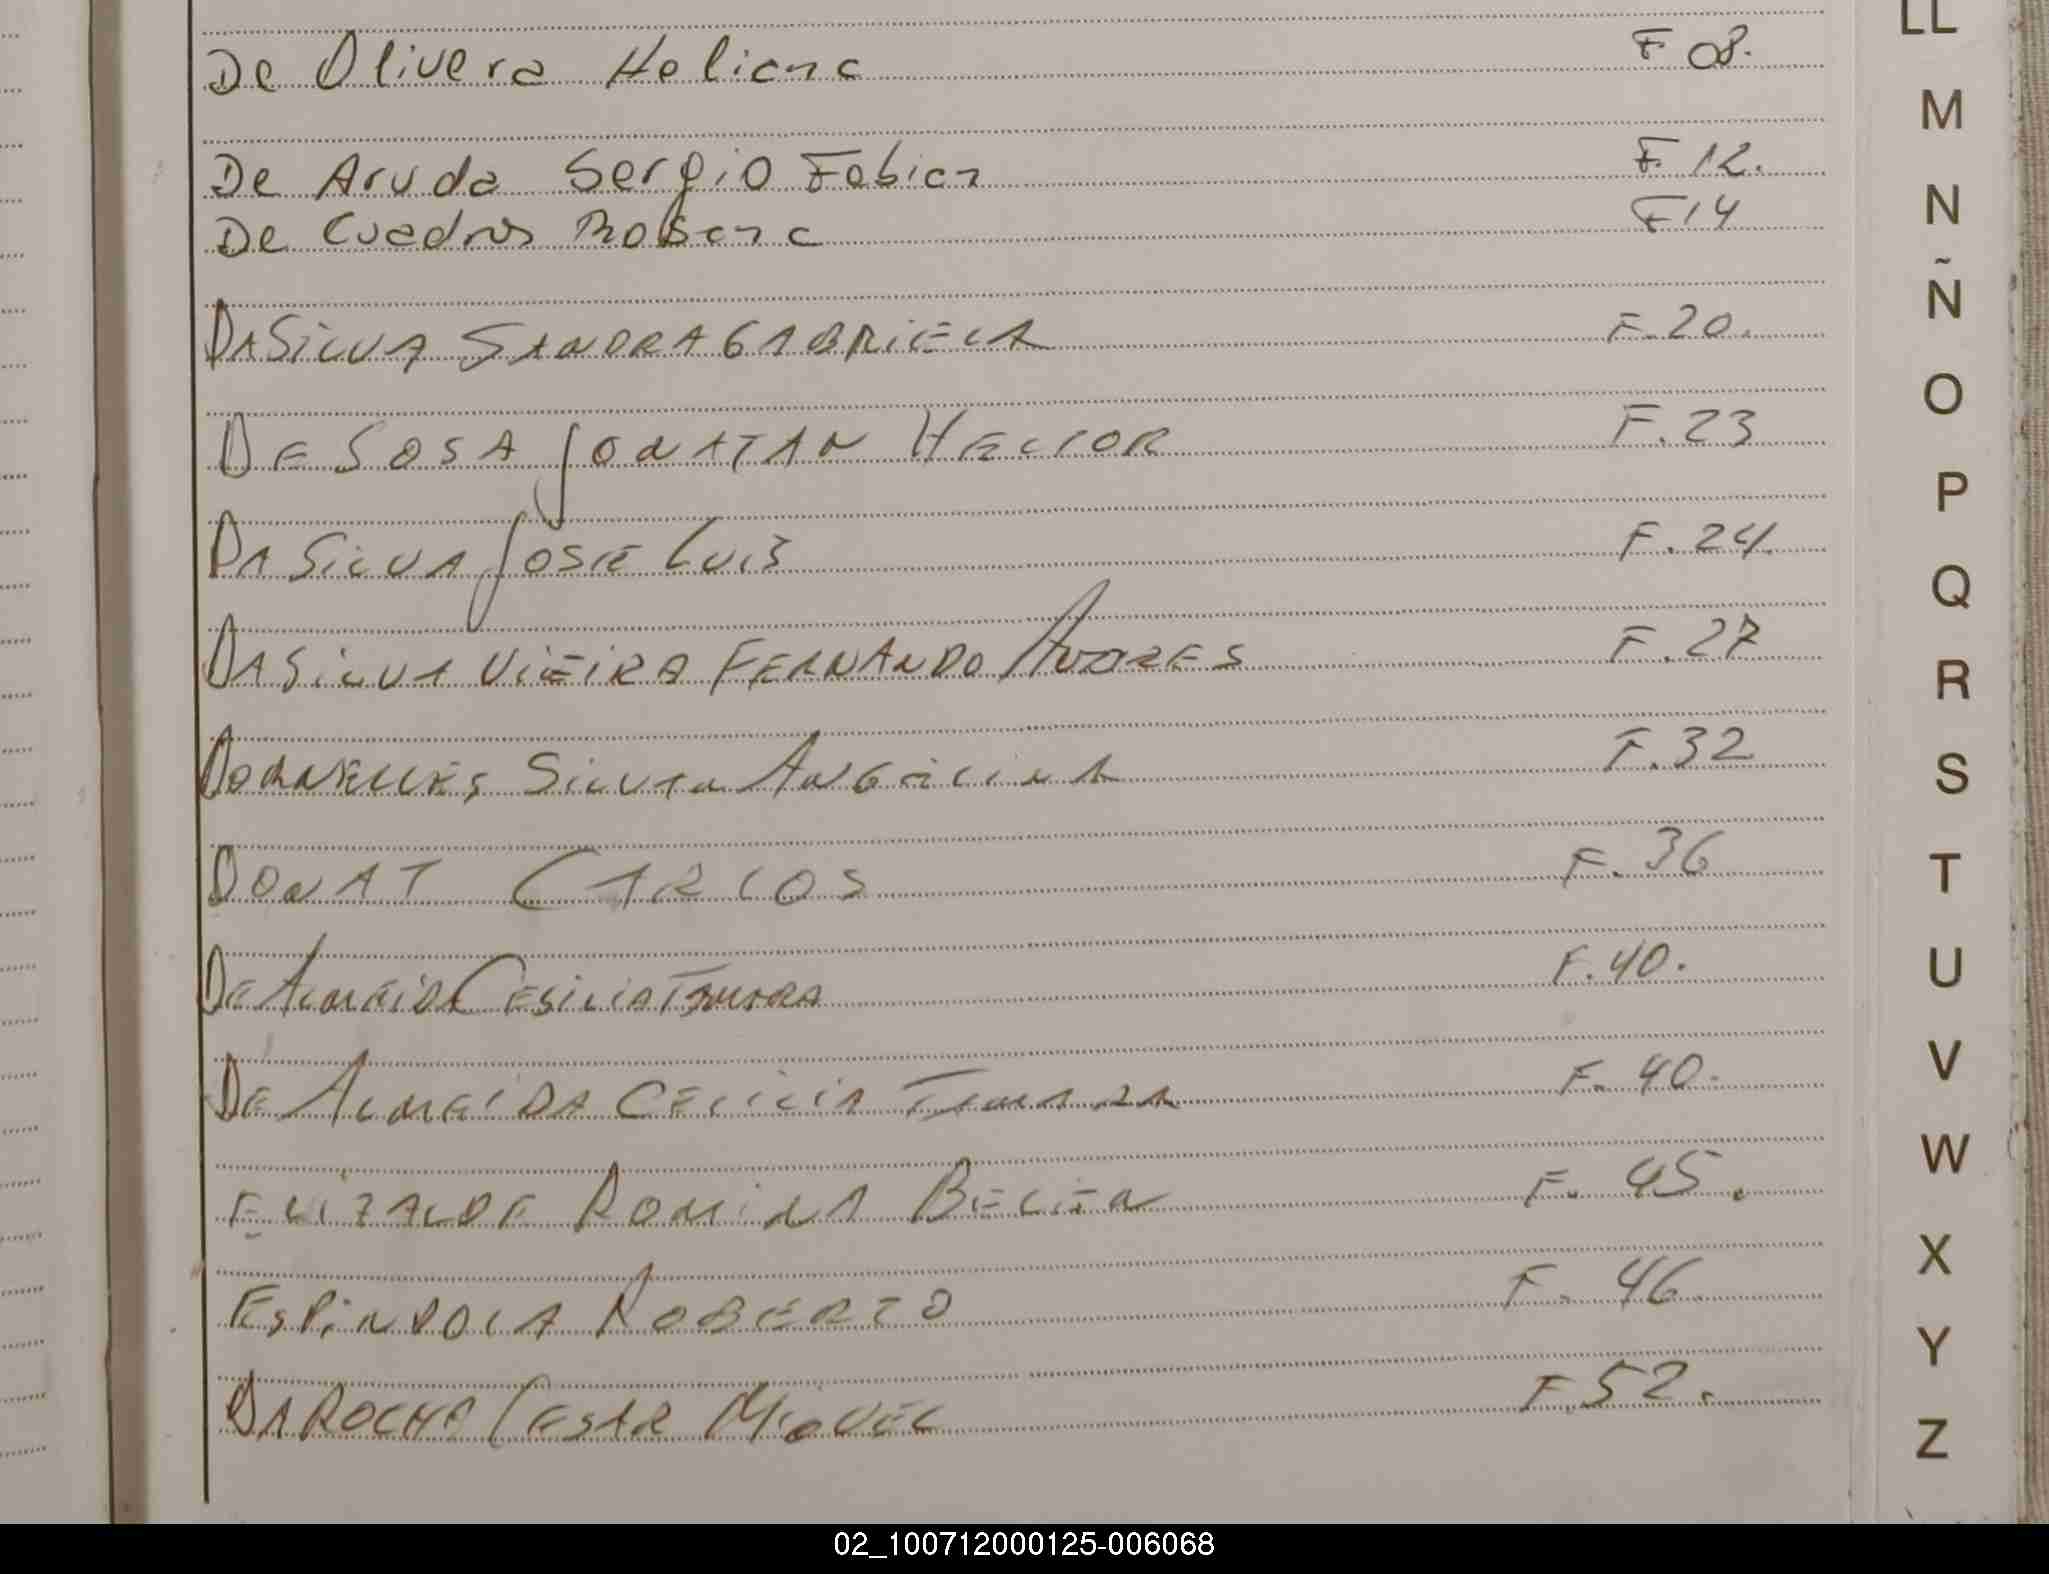 De Olivera Heliana F 08.
De Aruda Sergio Fabian F.12.
De Cuadros Rosana F14
DASILVA SANDRA GABRIELA F.20.
DE SOSA JONATAN HECTOR F.23
DA SILVA JOSE LUIS F.24.
DA SILVA VIEIRA FERNANDO ANDRES F.27
DORNELLES SILVIA ANGELINA F.32
DONAT CARLOS F.36
DE ALMEIDA CESILIA TAMARA F.40.
DE ALMEIDA CECILIA TAMARA F.40.
ELIZALDE ROMINA BELEN F.45.
ESPINDOLA ROBERTO F.46
DAROCHA CESAR MIGUEL F.52.
LL
M
N
Ñ
O
P
Q
R
S
T
U
V
W
X
Y
Z
02_100712000125-006068